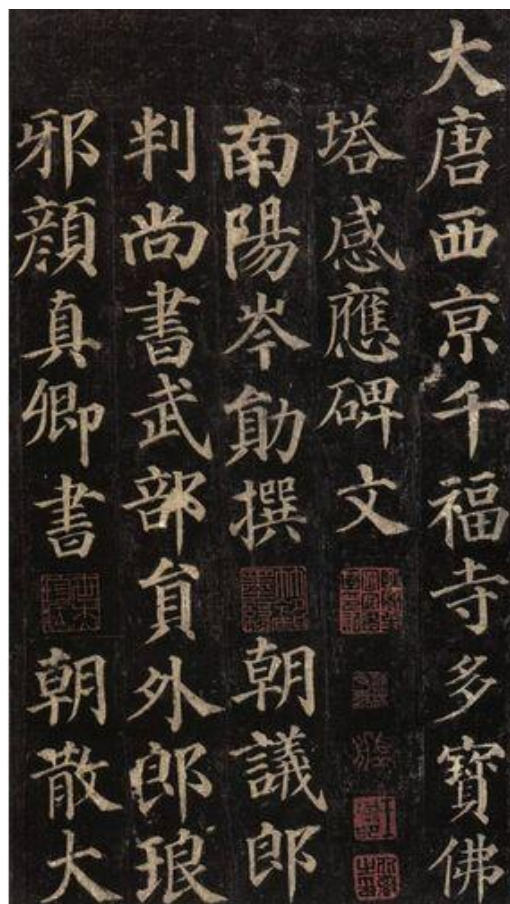 大唐西京千福寺多寶佛
塔感應碑文
南陽岑勛撰 朝議郎
判尚書武部貟外郎琅
邪顔真卿書 朝散大